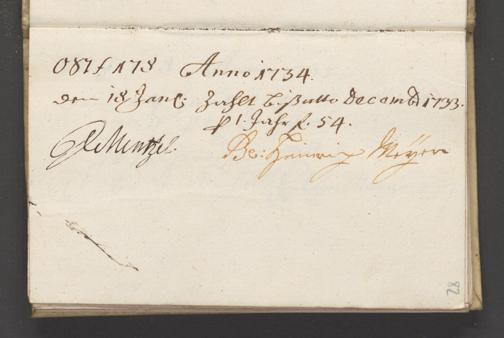 Anno 1734.
den 18 Jan: Zahlt biß ulto Decemb 1733.
p 1. Jahr f. 54.
Mentzel. Be: Hinrig Meÿer
28